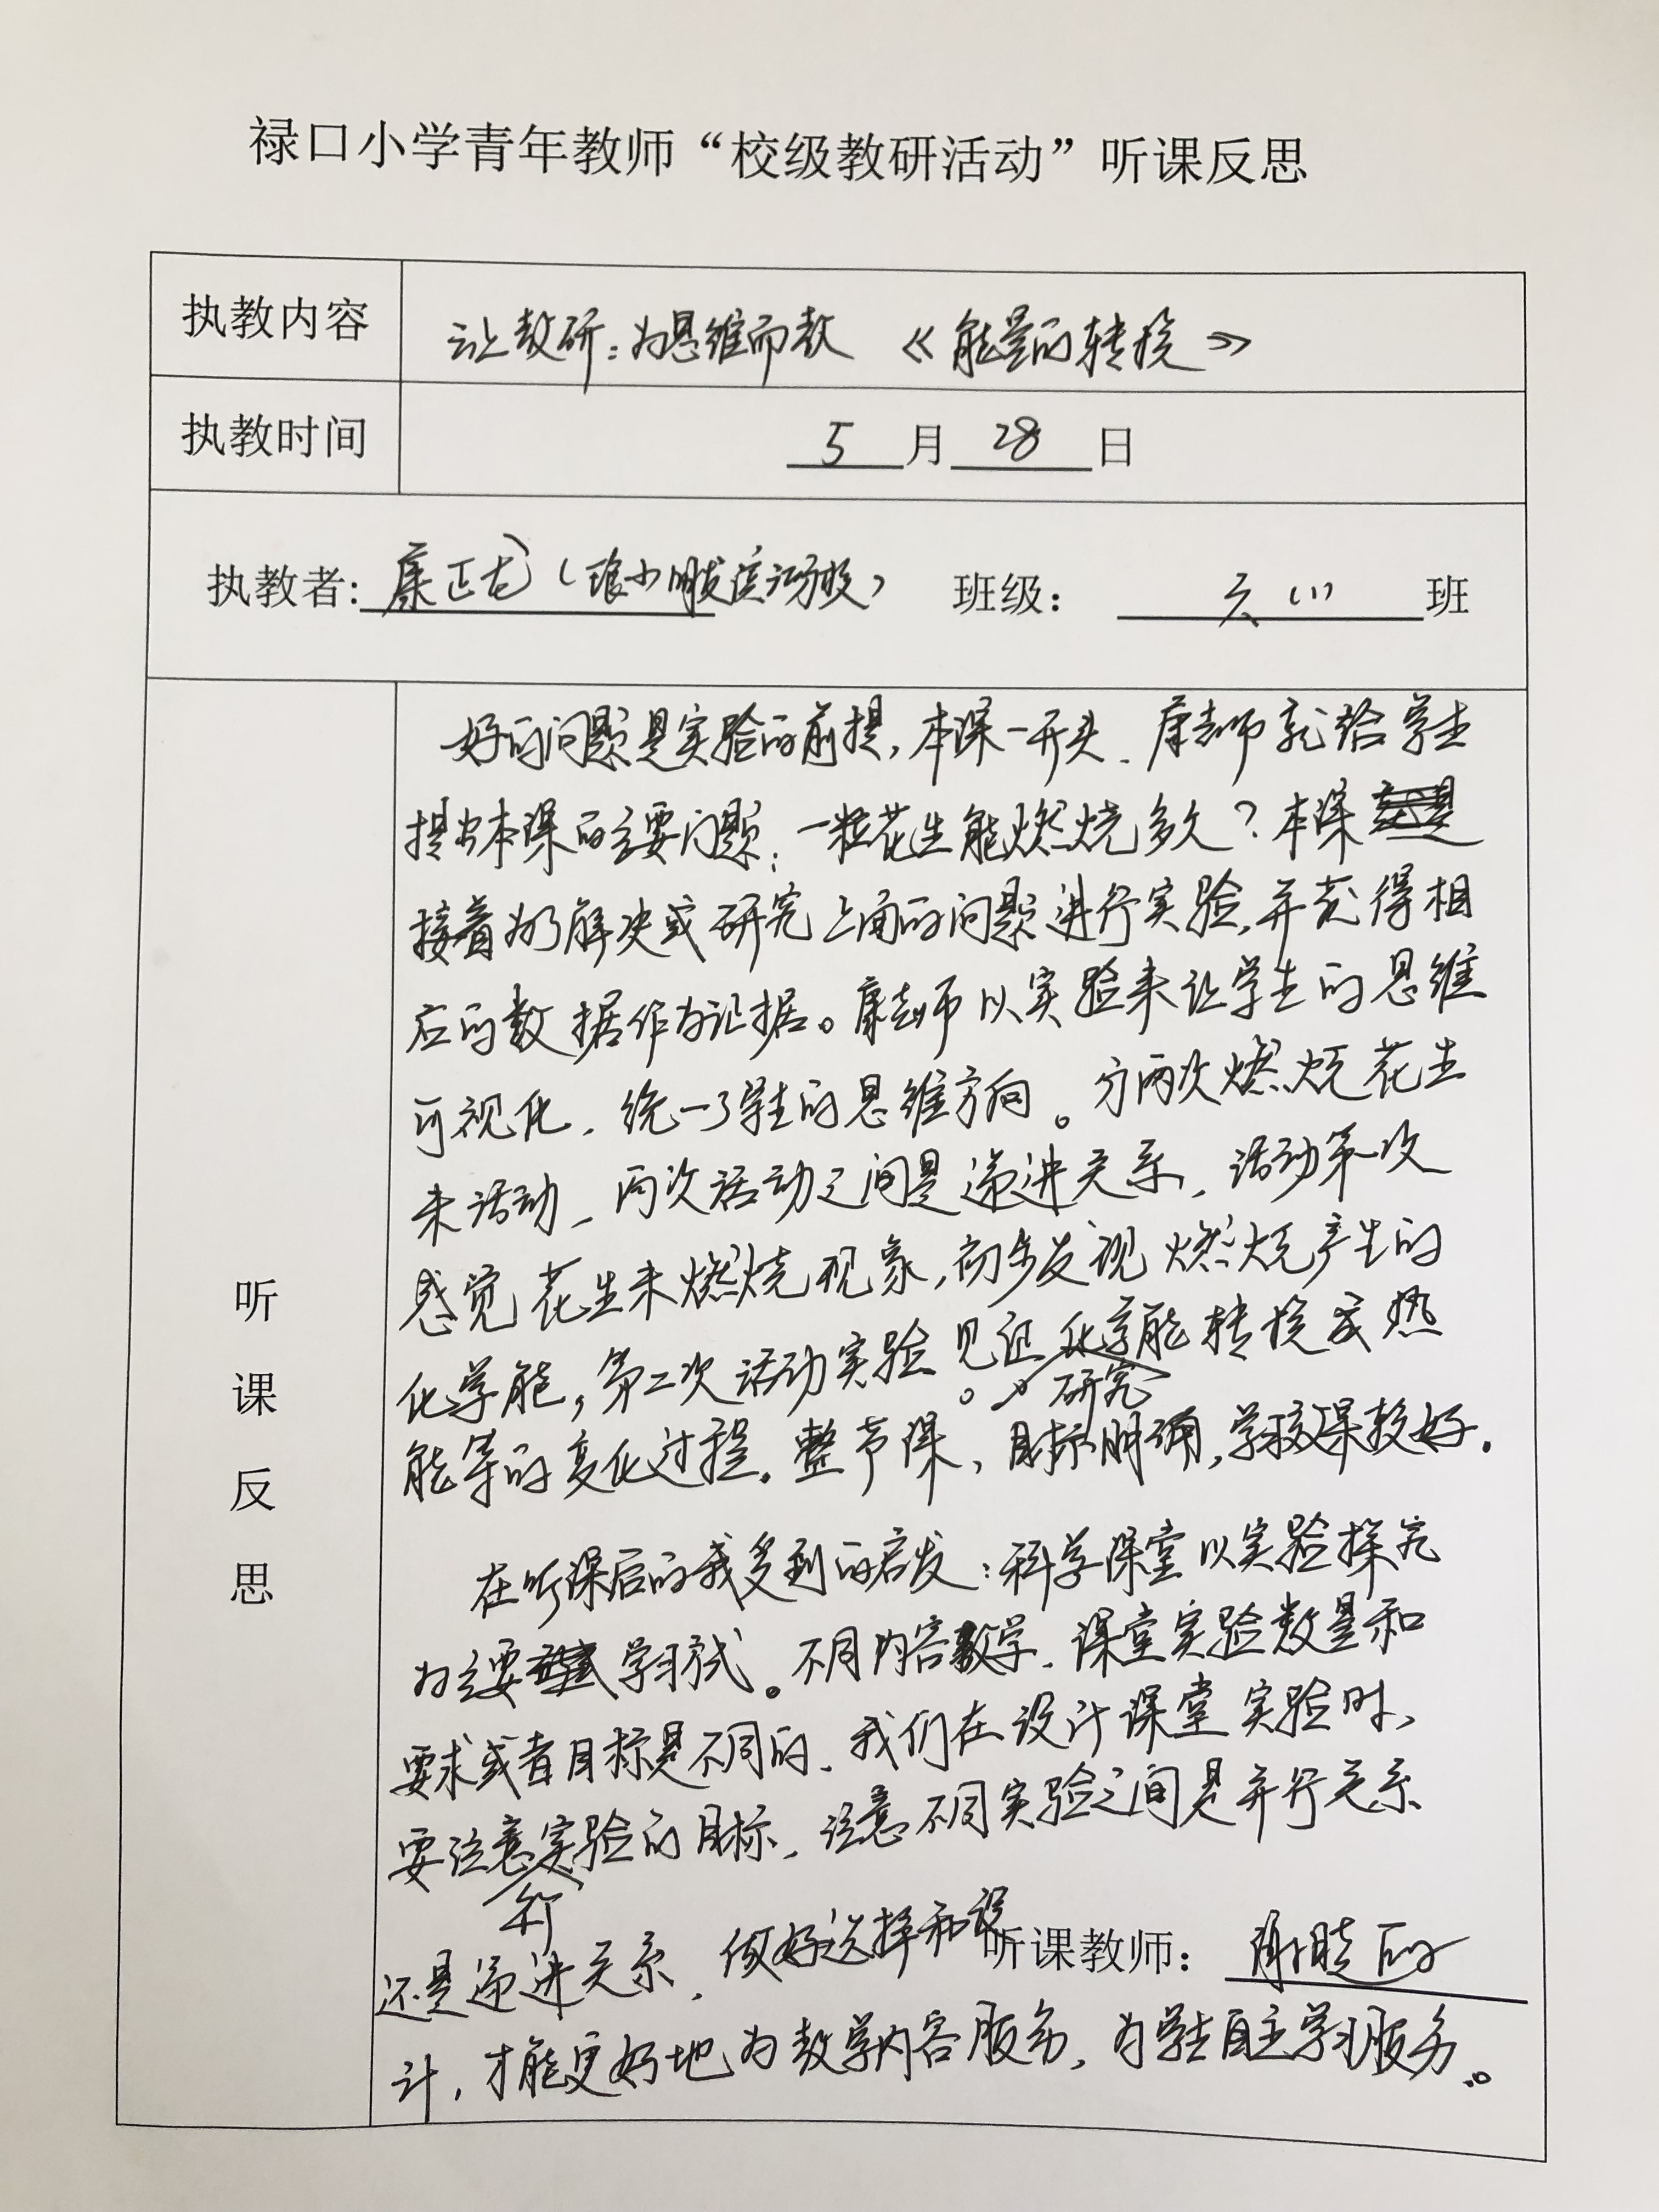 禄口小学青年教师“校级教研活动”听课反思
执教内容
云上教研:为思维而教 《能量的转换》
执教时间
5月28日
执教者: 康正 班级: 六(1)班
听课反思
好的问题是实验的前提,本课一开头、康老师就给学生
提出本课的主要问题:一粒花生能燃烧多久?本课
接着为了解决或研究上面的问题进行实验,并获得相
应的数据作为证据。康老师以实验来让学生的思维
可视化,统一了学生的思维方向。分两次燃烧花生
来活动、两次活动之间是递进关系,活动第一次
感觉花生米燃烧现象,初步发现燃烧产生的
化学能,第二次活动实验见证研究化学能转换成热
能等的变化过程。整节课、目标明确,学较好。
在听课后的我受到的启发:科学课堂以实验探究
为主要学习方式。不同内容教学、课堂实验数量和
要求或者目标是不同的、我们在设计课堂实验时、
要注意实验的目标、注意不同实验之间是并行关系
还是递进关系,做好选择和设
听课教师:
计,才能更好地为教学内容服务,为学生自主学习服务。